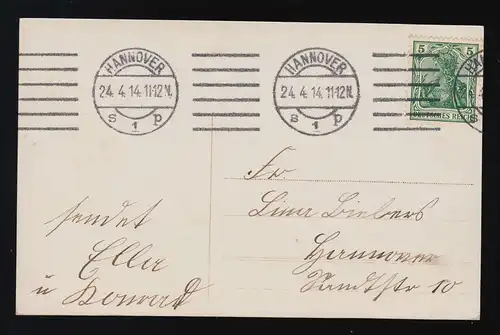 HANNOVER
24. 4. 14. 11-12 N.
S 1 p
HANNOVER
24. 4. 14. 11-12 N.
S 1 p
5 5
DEUTSCHES REICH
HAN
S
sendet
Ella
u Konrad
Fr.
Lina Biebers
Hannover
Sandtstr 10